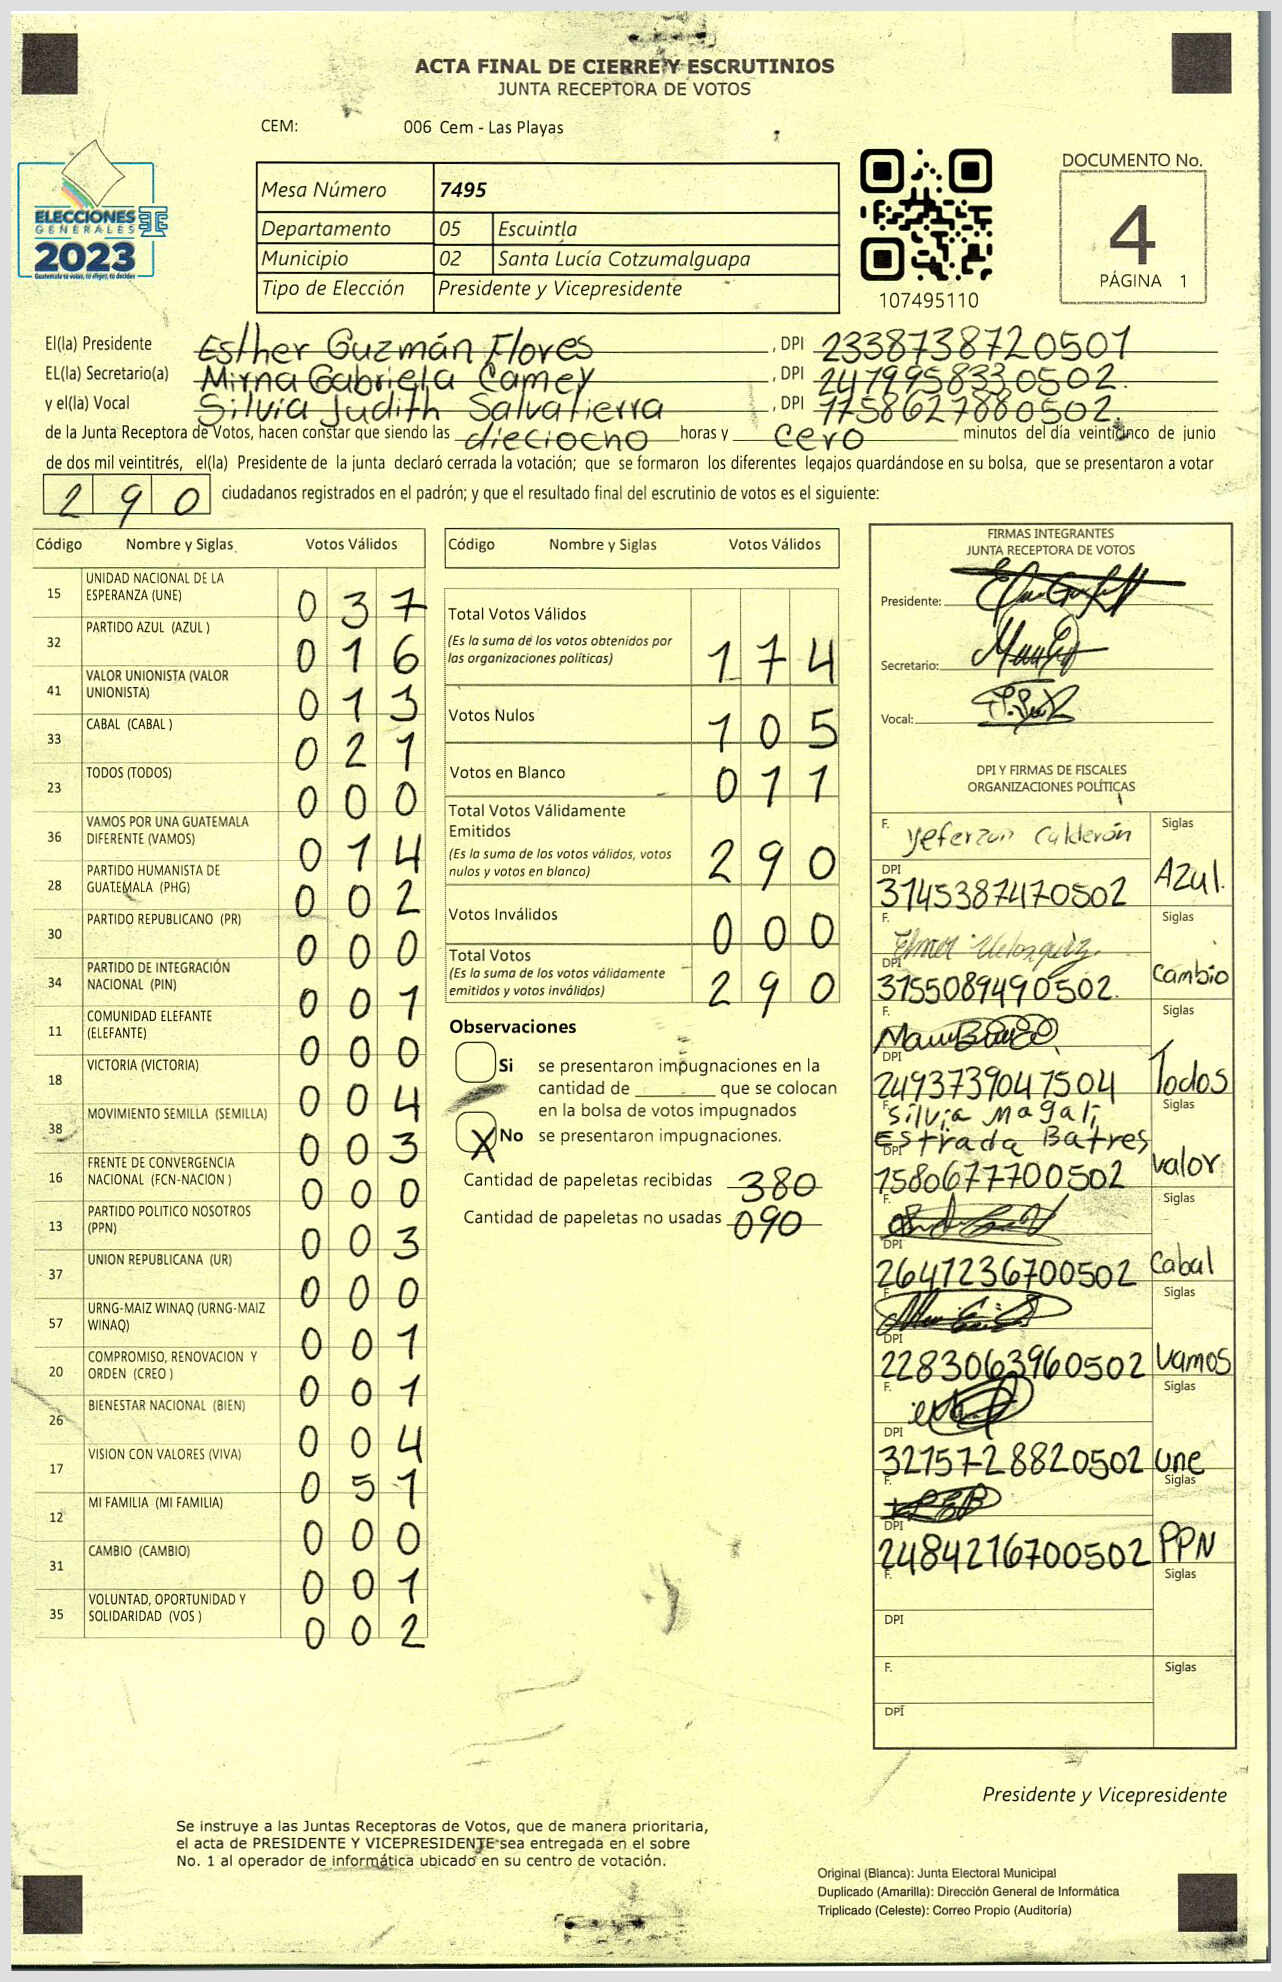 ACTA FINAL DE CIERRE Y ESCRUTINIOS
JUNTA RECEPTORA DE VOTOS
CEM: 006 Cem - Las Playas
ELECCIONES
GENERALES
2023
Guatemala tú votas, tú eliges, tú decides
Mesa Número 7495
Departamento 05 Escuintla
Municipio 02 Santa Lucía Cotzumalguapa
Tipo de Elección Presidente y Vicepresidente
107495110
DOCUMENTO No.
4
PÁGINA 1
El(la) Presidente Esther Guzmán Flores , DPI 2338738720501
EL(la) Secretario(a) Mirna Gabriela Camey , DPI 2479958330502.
y el(la) Vocal Silvia Judith Salvatierra , DPI 1758627880502.
de la Junta Receptora de Votos, hacen constar que siendo las dieciocho horas y cero minutos del día veinticinco de junio
de dos mil veintitrés, el(la) Presidente de la junta declaró cerrada la votación; que se formaron los diferentes legajos quardándose en su bolsa, que se presentaron a votar
290 ciudadanos registrados en el padrón; y que el resultado final del escrutinio de votos es el siguiente:
Código Nombre y Siglas Votos Válidos
15 UNIDAD NACIONAL DE LA ESPERANZA (UNE) 037
32 PARTIDO AZUL (AZUL ) 016
41 VALOR UNIONISTA (VALOR UNIONISTA) 013
33 CABAL (CABAL ) 021
23 TODOS (TODOS) 000
36 VAMOS POR UNA GUATEMALA DIFERENTE (VAMOS) 014
28 PARTIDO HUMANISTA DE GUATEMALA (PHG) 002
30 PARTIDO REPUBLICANO (PR) 000
34 PARTIDO DE INTEGRACIÓN NACIONAL (PIN) 001
11 COMUNIDAD ELEFANTE (ELEFANTE) 000
18 VICTORIA (VICTORIA) 004
38 MOVIMIENTO SEMILLA (SEMILLA) 003
16 FRENTE DE CONVERGENCIA NACIONAL (FCN-NACION ) 000
13 PARTIDO POLITICO NOSOTROS (PPN) 003
37 UNION REPUBLICANA (UR) 000
57 URNG-MAIZ WINAQ (URNG-MAIZ WINAQ) 001
20 COMPROMISO, RENOVACION Y ORDEN (CREO ) 001
26 BIENESTAR NACIONAL (BIEN) 004
17 VISION CON VALORES (VIVA) 051
12 MI FAMILIA (MI FAMILIA) 000
31 CAMBIO (CAMBIO) 001
35 VOLUNTAD, OPORTUNIDAD Y SOLIDARIDAD (VOS ) 002
Código Nombre y Siglas Votos Válidos
Total Votos Válidos
(Es la suma de los votos obtenidos por
las organizaciones políticas) 174
Votos Nulos 105
Votos en Blanco 011
Total Votos Válidamente
Emitidos
(Es la suma de los votos válidos, votos
nulos y votos en blanco) 290
Votos Inválidos 000
Total Votos
(Es la suma de los votos válidamente
emitidos y votos inválidos) 290
Observaciones
Si se presentaron impugnaciones en la
cantidad de ______ que se colocan
en la bolsa de votos impugnados
X No se presentaron impugnaciones.
Cantidad de papeletas recibidas 380
Cantidad de papeletas no usadas 090
FIRMAS INTEGRANTES
JUNTA RECEPTORA DE VOTOS
Presidente:
Secretario:
Vocal:
DPI Y FIRMAS DE FISCALES
ORGANIZACIONES POLÍTICAS
F. Yeferzon Calderón Siglas
DPI 3145387470502 Azul.
F. Elmer Velasquez Siglas
DPI 3155089490502. Cambio
F. Siglas
DPI 2493739047504 Todos
F. Silvia Magali Siglas
Estrada Batres
DPI 1580677700502 valor
F. Siglas
DPI 2647236700502 Cabal
Siglas
DPI 2283063960502 Vamos
F. Siglas
DPI 3215728820502 une
F. Siglas
DPI 2484216700502 PPN
F. Siglas
DPI
F. Siglas
DPI
Presidente y Vicepresidente
Se instruye a las Juntas Receptoras de Votos, que de manera prioritaria,
el acta de PRESIDENTE Y VICEPRESIDENTE sea entregada en el sobre
No. 1 al operador de informática ubicado en su centro de votación.
Original (Blanca): Junta Electoral Municipal
Duplicado (Amarilla): Dirección General de Informática
Triplicado (Celeste): Correo Propio (Auditoría)